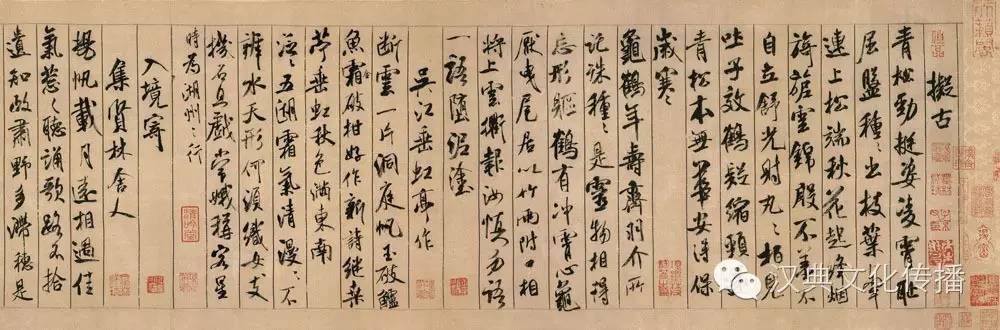 擬古
青松勁挺姿凌霄恥
屈盤種種出枝葉牽
連上松端秋花起絳煙
旖旎雲錦殷不羞不
自立舒光射丸丸柏見
吐子效鶴疑縮頸還
青松本無華安得保
歲寒
龜鶴年壽齊羽介所
託殊種種是靈物相得
忘形軀鶴有沖霄心龜
厭曳尾居以竹兩附口相
將上雲衢報汝慎勿語
一語墮泥塗
吳江垂虹亭作
斷雲一片洞庭帆玉破鱸
魚霜金破柑好作新詩繼桑
苧垂虹秋色滿東南
泛泛五湖霜氣清漫漫不
辨水天形何須織女支
機石且戲常娥稱客星
時為湖州之行
入境寄
集賢林舍人
揚帆載月遠相過佳
氣蔥蔥聽誦歌路不拾
遺知政肅野多滯穗是
汉典文化传播